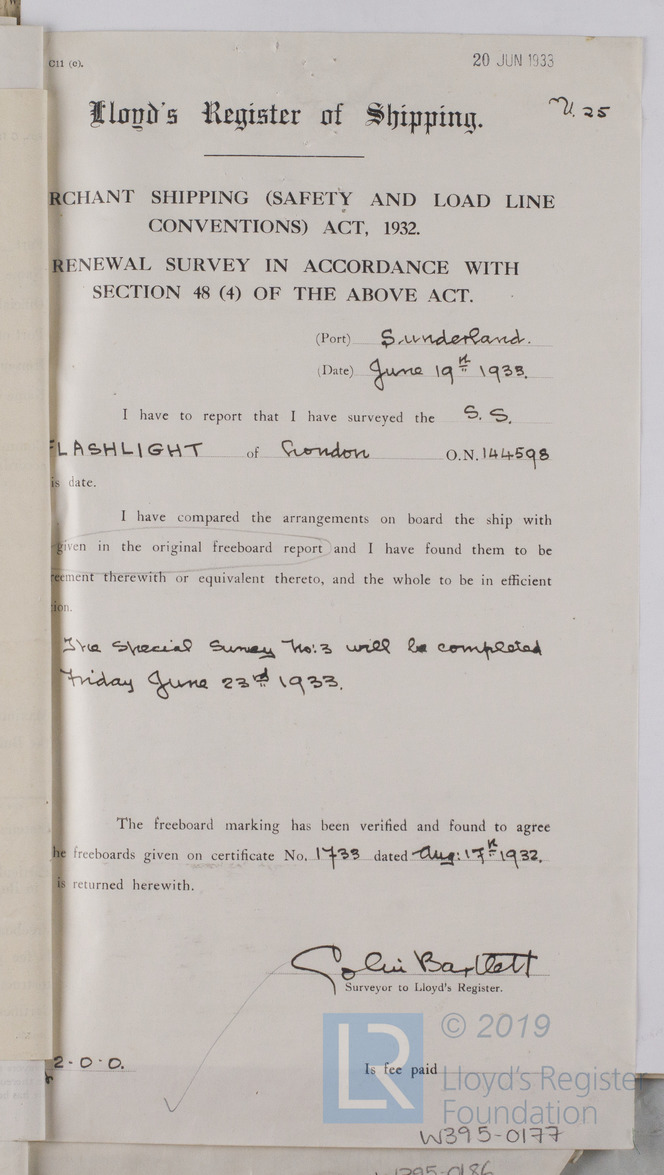 C11 (c).
20 JUN 1933
Lloyd's Register of Shipping.
25
RCHANT SHIPPING (SAFETY AND LOAD LINE
CONVENTIONS) ACT, 1932.
RENEWAL SURVEY IN ACCORDANCE WITH
SECTION 48 (4) OF THE ABOVE ACT.
(Port) Sunderland.
(Date) June 19th 1933.
I have to report that I have surveyed the S. S.
FLASHLIGHT of London O.N. 144598
is date.
I have compared the arrangements on board the ship with
given in the original freeboard report and I have found them to be
reement therewith or equivalent thereto, and the whole to be in efficient
ion.
The Special Survey No: 3 will be completed
Friday June 23rd 1933.
The freeboard marking has been verified and found to agree
he freeboards given on certificate No. 1733 dated Aug: 17th 1932.
is returned herewith.
Colin Bartlett
Surveyor to Lloyd's Register.
2-0-0.
Is fee paid
LR
© 2019
Lloyd's Register
Foundation
W395-0177
W395-0186